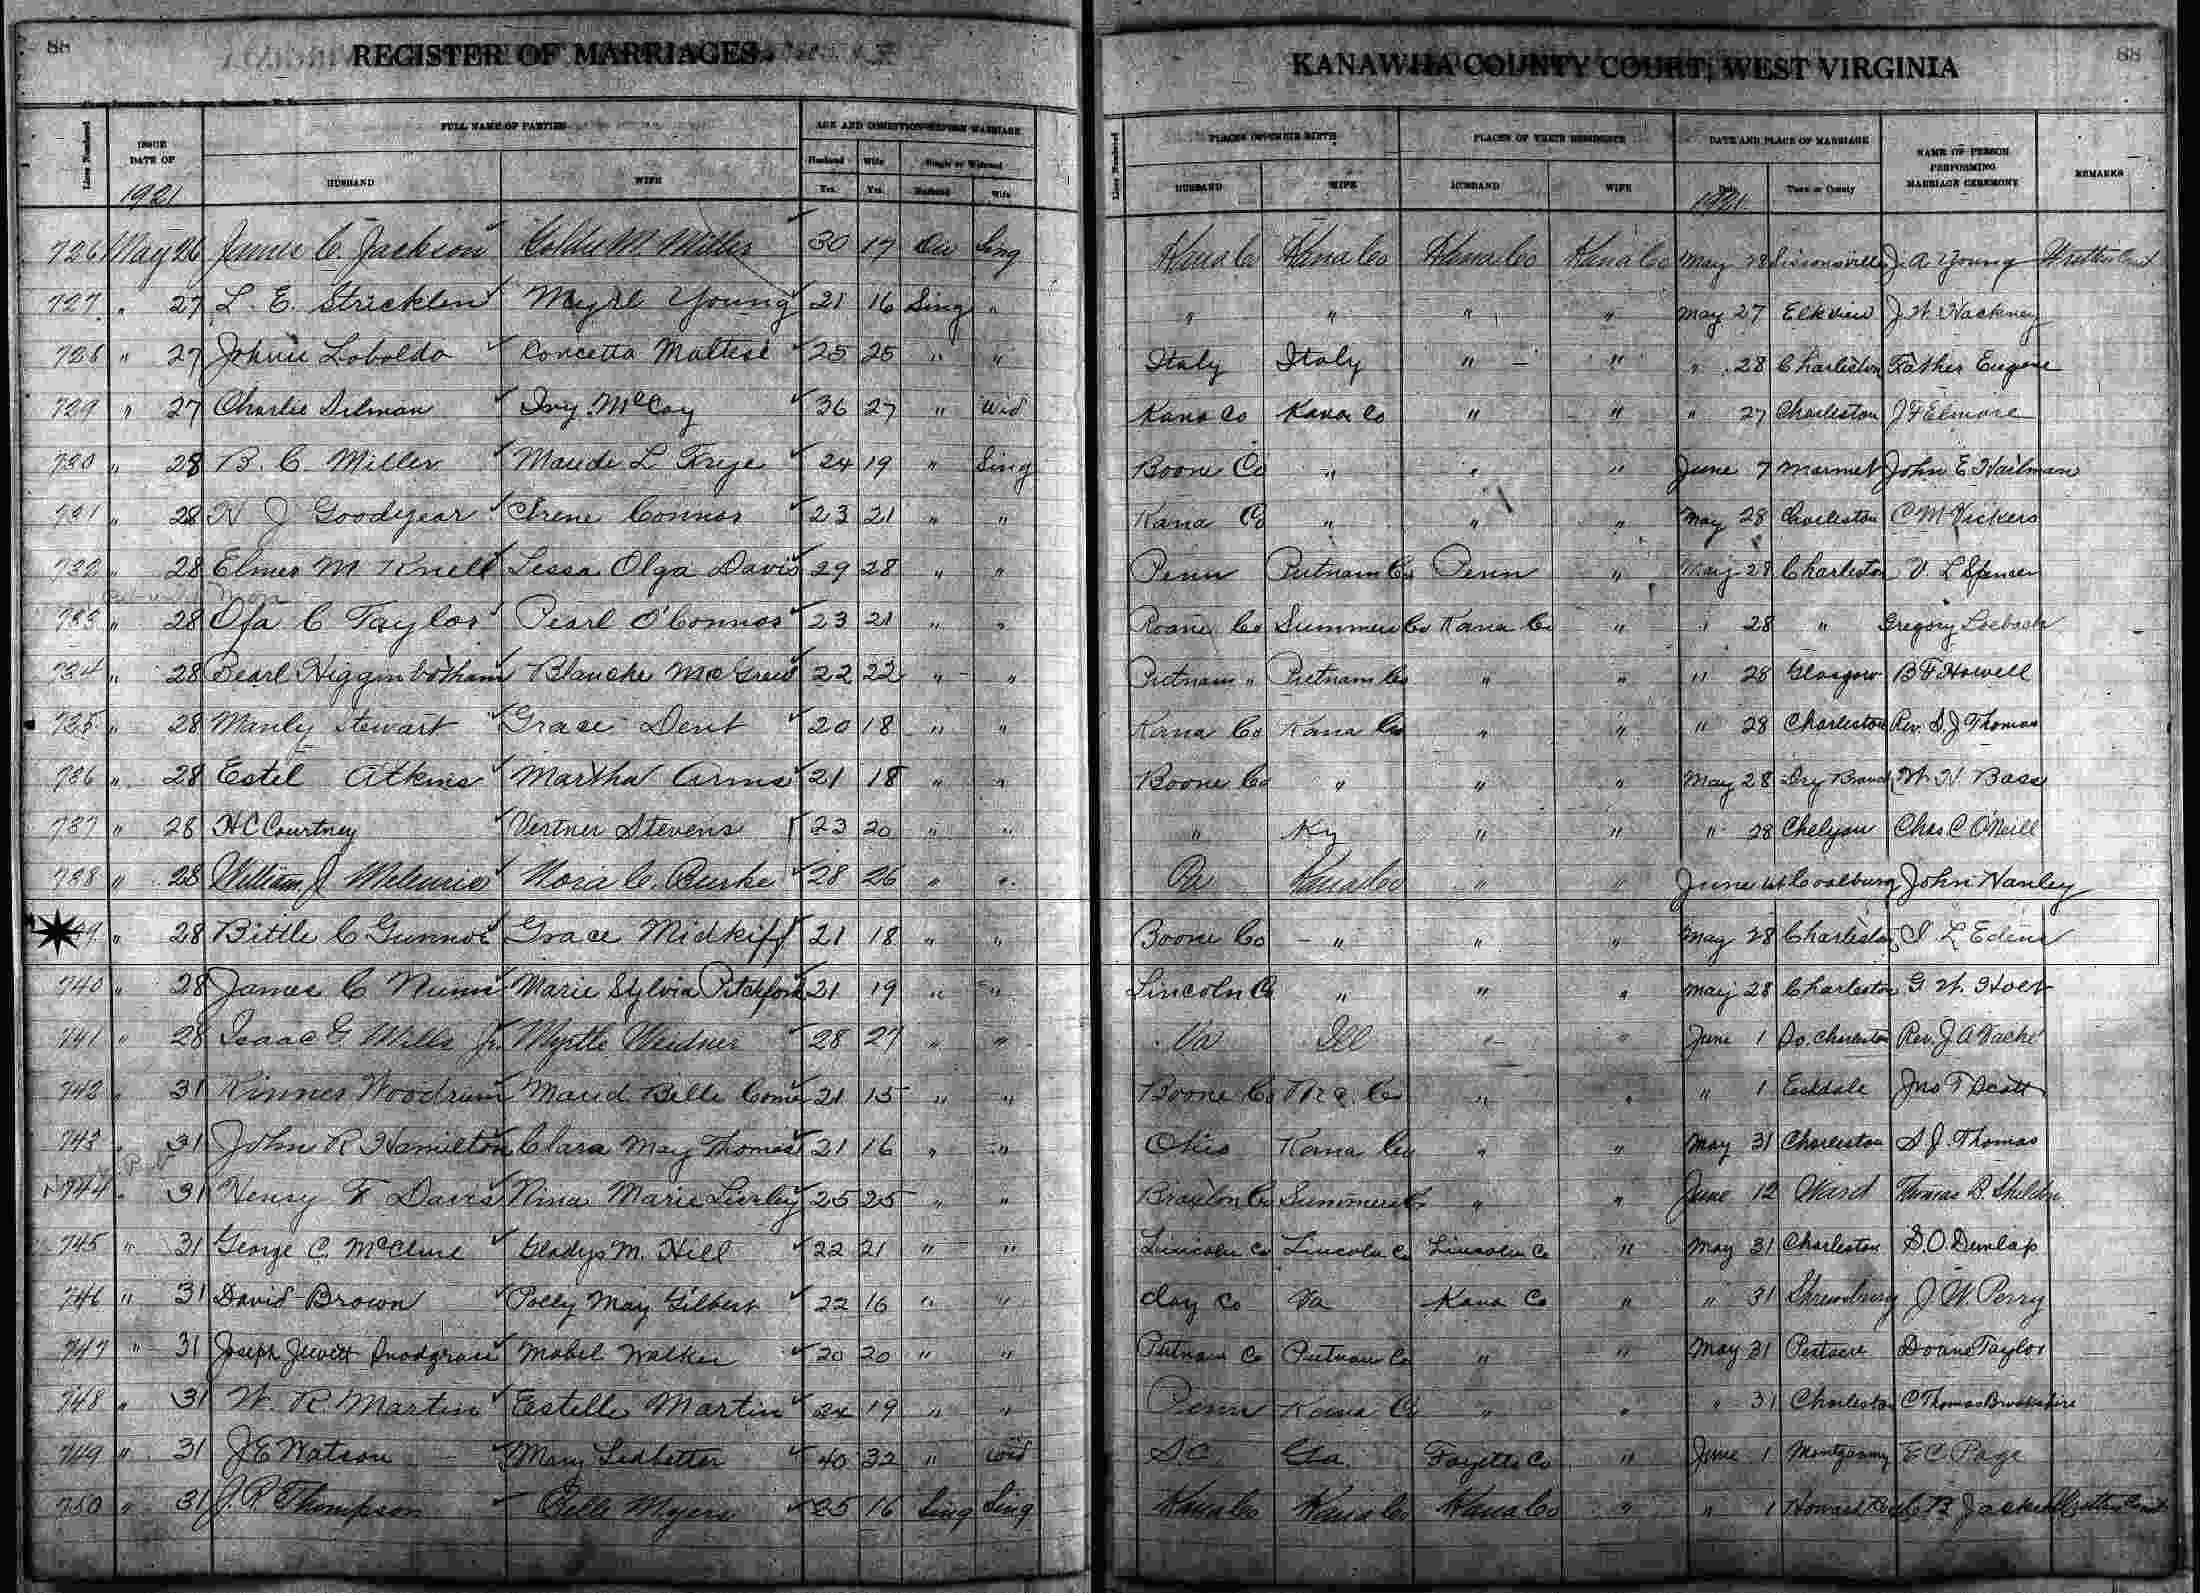 88
REGISTER OF MARRIAGES.
KANAWHA COUNTY COURT, WEST VIRGINIA
88
Line Numbered
ISSUE DATE OF
FULL NAME OF PARTIES
AGE AND CONDITION BEFORE MARRIAGE
Line Numbered
PLACES OF THEIR BIRTH
PLACES OF THEIR RESIDENCE
DATE AND PLACE OF MARRIAGE
NAME OF PERSON PERFORMING MARRIAGE CEREMONY
REMARKS
HUSBAND WIFE Husband Yrs. Wife Yrs. Single or Widowed Husband Wife
HUSBAND WIFE HUSBAND WIFE Date Town or County
1921 1921
726 May 26 Jennie C. Jackson Goldie M. Miller 30 17 Div Sing Kana Co Kana Co Kana Co Kana Co May 28 Sissonsville J. A. Young Written Con
727 " 27 L. E. Stricklen Meyrl Young 21 16 Sing " " " " " May 27 Elkview J. W. Hackney
728 " 27 Johnie Loboldo Concetta Maltese 25 25 " " Italy Italy " " " 28 Charleston Father Eugene
729 " 27 Charlie Silman Ivy McCoy 36 27 " Wid Kana Co Kana Co " " " 27 Charleston J F Elmore
730 " 28 B. C. Miller Maude L Frye 24 19 " Sing Boone Co " " " June 7 Marmet John E Hailman
731 " 28 H J Goodyear Irene Connor 23 21 " " Kana Co " " " May 28 Charleston C M Vickers
732 " 28 Elmer M Knell Lessa Olga Davis 29 28 " " Penn Putnam Co Penn " May 28 Charleston V. L Spencer
733 " 28 Ofa C Taylor Pearl O'Connor 23 21 " " Roane Co Summers Co Kana Co " " 28 " Gregory
734 " 28 Bearl Higginbotham Blanche McGrew 22 22 " " Putnam " Putnam Co " " " 28 Glasgow B F Howell
735 " 28 Manly Stewart Grace Dent 20 18 " " Kana Co Kana Co " " " 28 Charleston Rev. S. J. Thomas
736 " 28 Estel Atkins Martha Arms 21 18 " " Boone Co " " " May 28 Dry Branch W. H. Bass
737 " 28 H C Courtney Vertner Stevens 23 20 " " " Ky " " " 28 Chelyan Chas C O'Neill
738 " 28 William J Nora C. Burke 28 26 " " Pa Kana Co " " June 1st Coalburg John Hanley
739 " 28 Bittle C Gunnoe Grace Midkiff 21 18 " " Boone Co " " " May 28 Charleston I. L Edens
740 " 28 James C Nunn Marie Sylvia Pitchford 21 19 " " Lincoln Co " " " May 28 Charleston G. W. Holt
741 " 28 Isaac G Mills Jr. Myrtle Weidner 28 27 " " Va Ill " " June 1 So. Charleston Rev. J. A Vaché
742 " 31 Woodrum Maud Belle 21 15 " " Boone Co Co " " " 1 Eskdale Jno T Scott
743 " 31 John R Hamilton Clara May Thomas 21 16 " " Ohio Kana Co " " May 31 Charleston S J. Thomas
744 " 31 Henry F Davis Nina Marie Lively 25 25 " " Braxton Co Summers Co " " June 12 Ward Thomas B. Sheldon
745 " 31 George C. McClure Gladys M. Hill 22 21 " " Lincoln Co Lincoln Co Lincoln Co " May 31 Charleston S. O. Dunlap
746 " 31 David Brown Polly May Gilbert 22 16 " " Clay Co Va Kana Co " " 31 Shrewsbury J. W. Perry
747 " 31 Joseph Jewett Snodgrass Mabel Walker 20 20 " " Putnam Co Putnam Co " " May 31 Doane Taylor
748 " 31 W. R Martin Estelle Martin 24 19 " " Penn Kana Co " " " 31 Charleston C Thomas Brookshire
749 " 31 J E Watson Mary Ledbetter 40 32 " Wid S C Ga. Fayette Co " June 1 Montgomery E C Page
750 " 31 J. P. Thompson Belle Myers 25 16 Sing Sing Kana Co Kana Co Kana Co " " 1 Howard B Jackson Written Con